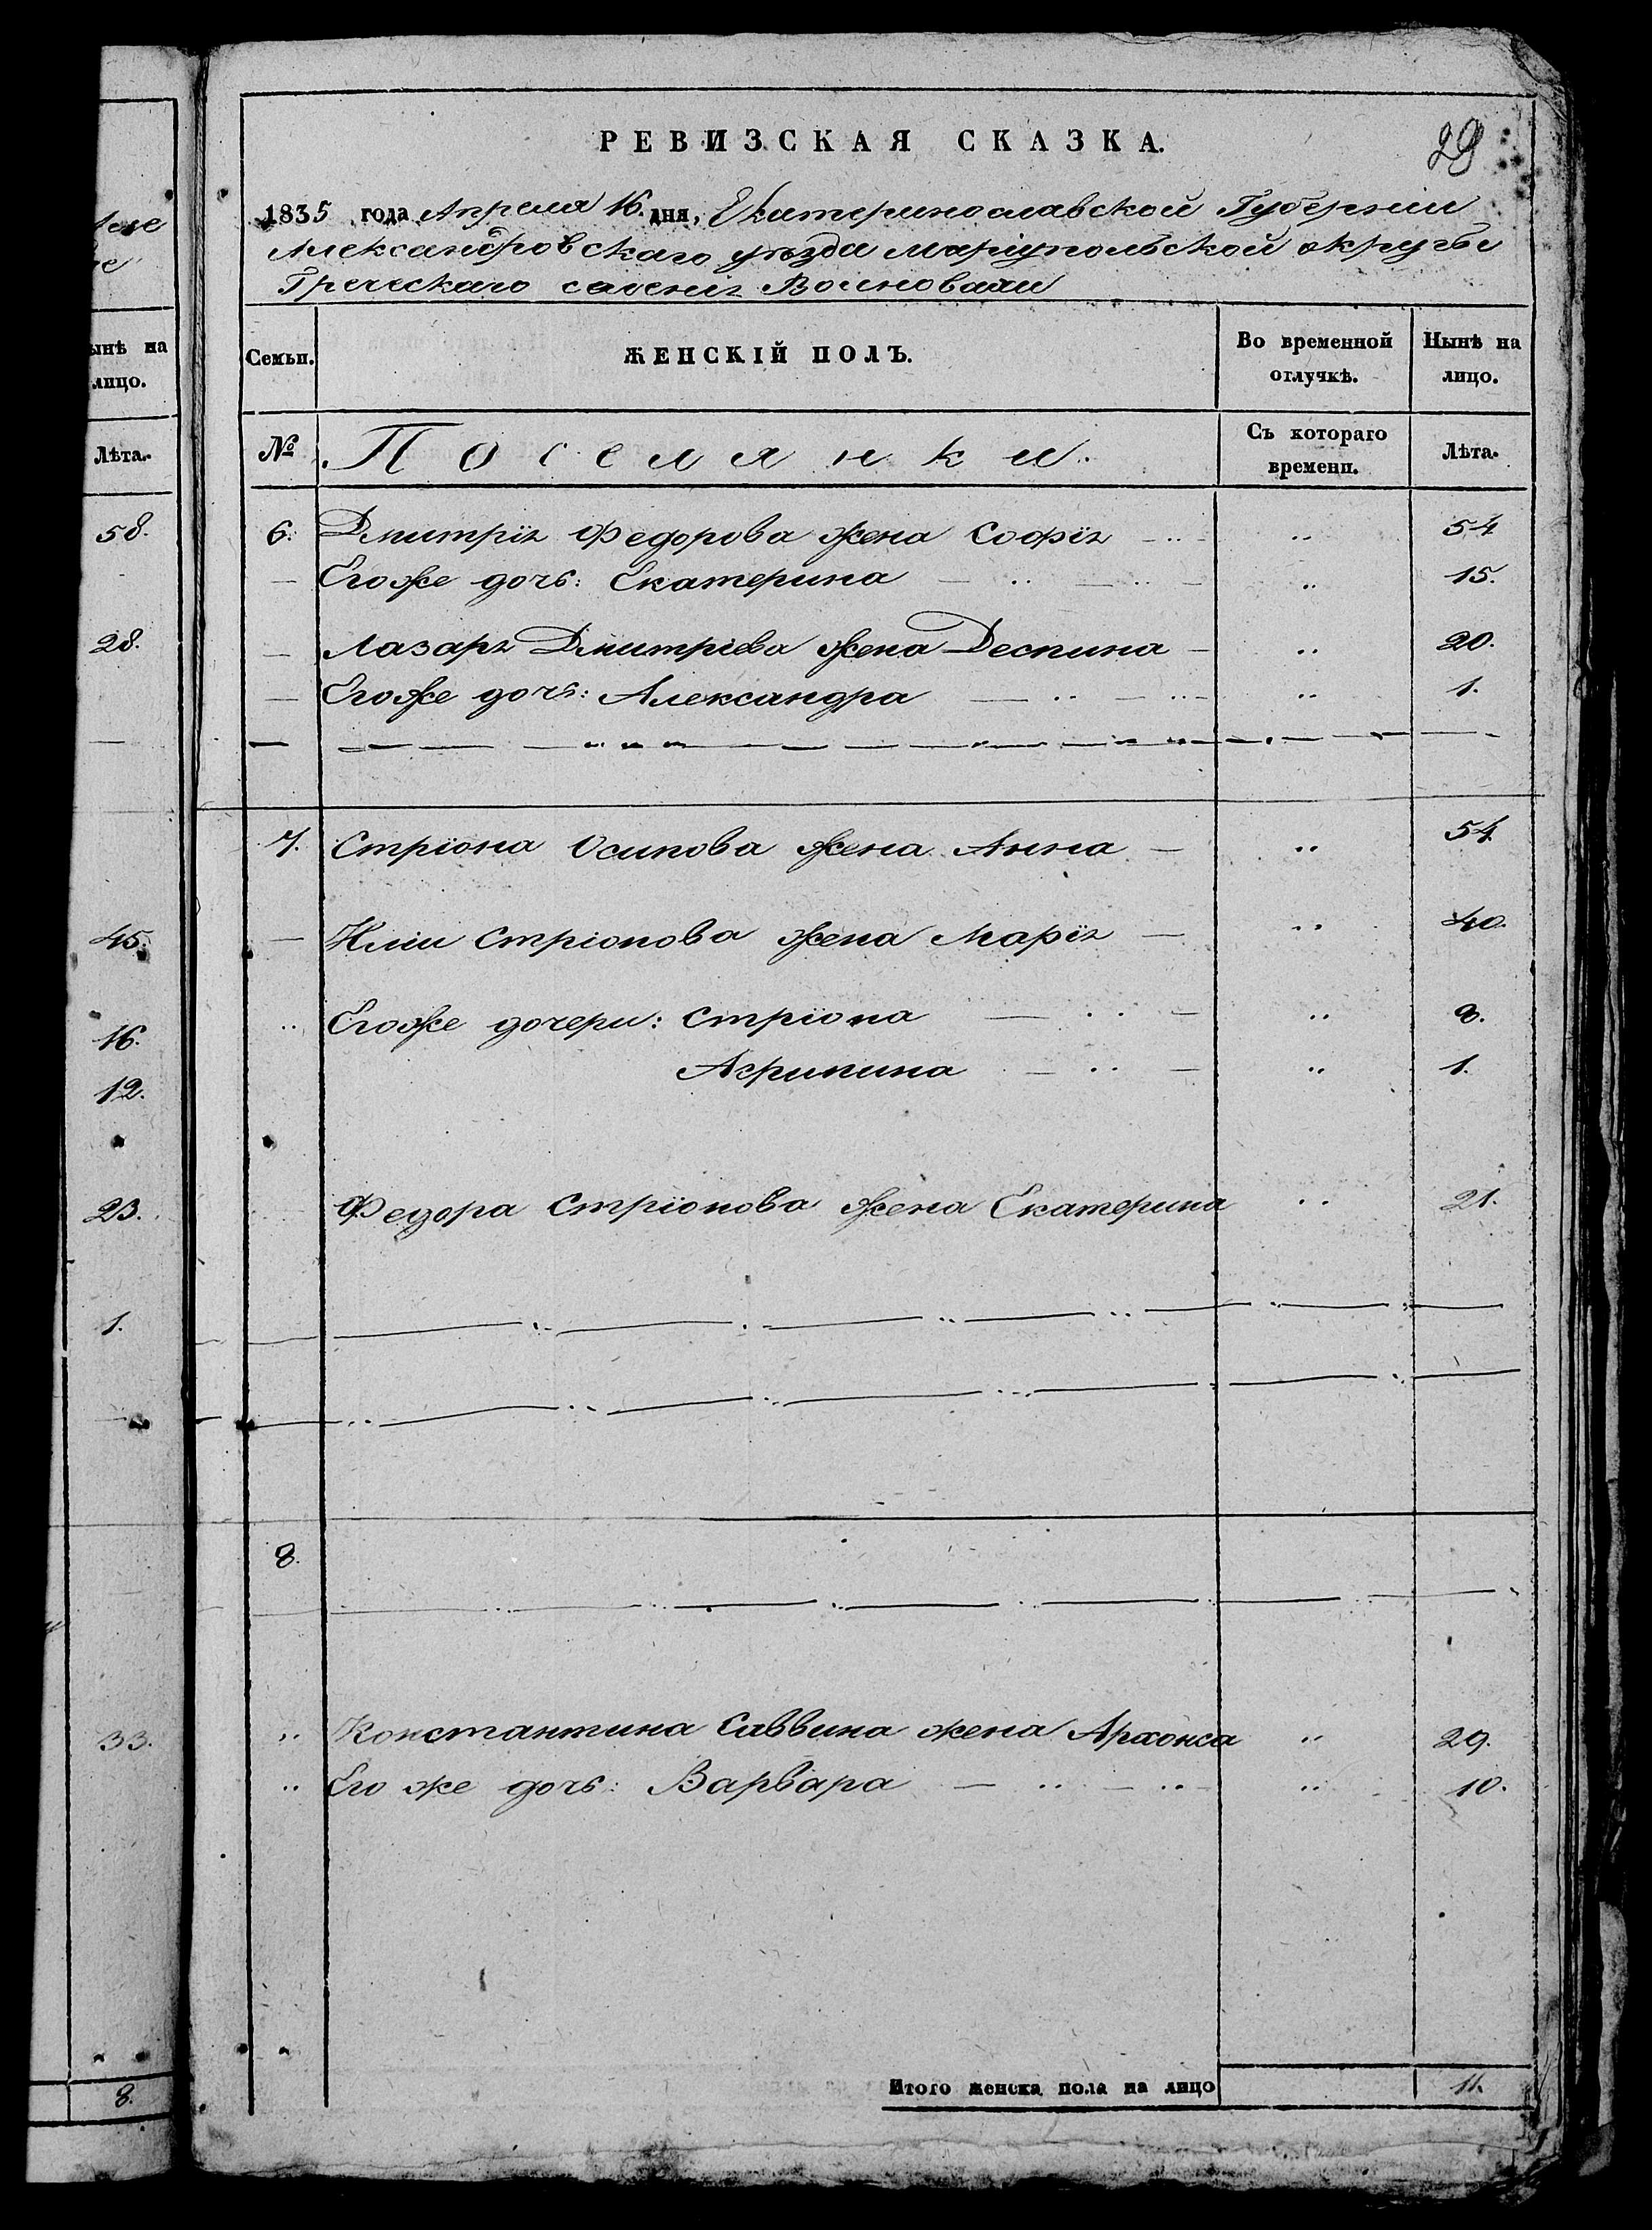 РЕВИЗСКАЯ СКАЗКА.
29
1835 года Апреля 16. дня, Екатеринославской Губерніи
Александровскаго уѣзда Маріупольской округи
Греческаго селенія
Семьи. ЖЕНСКІЙ ПОЛЪ. Во временной отлучкѣ. Нынѣ на лицо.
№ Поселянки. Съ котораго времени. Лѣта.
6. Дмитрія Федорова жена Софія 54
Егоже дочь: Екатерина 15.
Лазаря Дмитріева жена Деспина 20.
Егоже дочь: Александра 1.
7. Стріона Осипова жена Анна 54
Иліи Стріонова жена Марія 40.
Егоже дочери: Стріона 8.
Агрипина 1.
Федора Стріонова жена Екатерина 21.
8.
Константина Саввина жена 29.
Его же дочь: Варвара 10.
Итого женска пола на лицо 11.
ынѣ на
лицо.
Лѣта.
58.
28.
45.
16.
12.
23.
1.
33.
8.